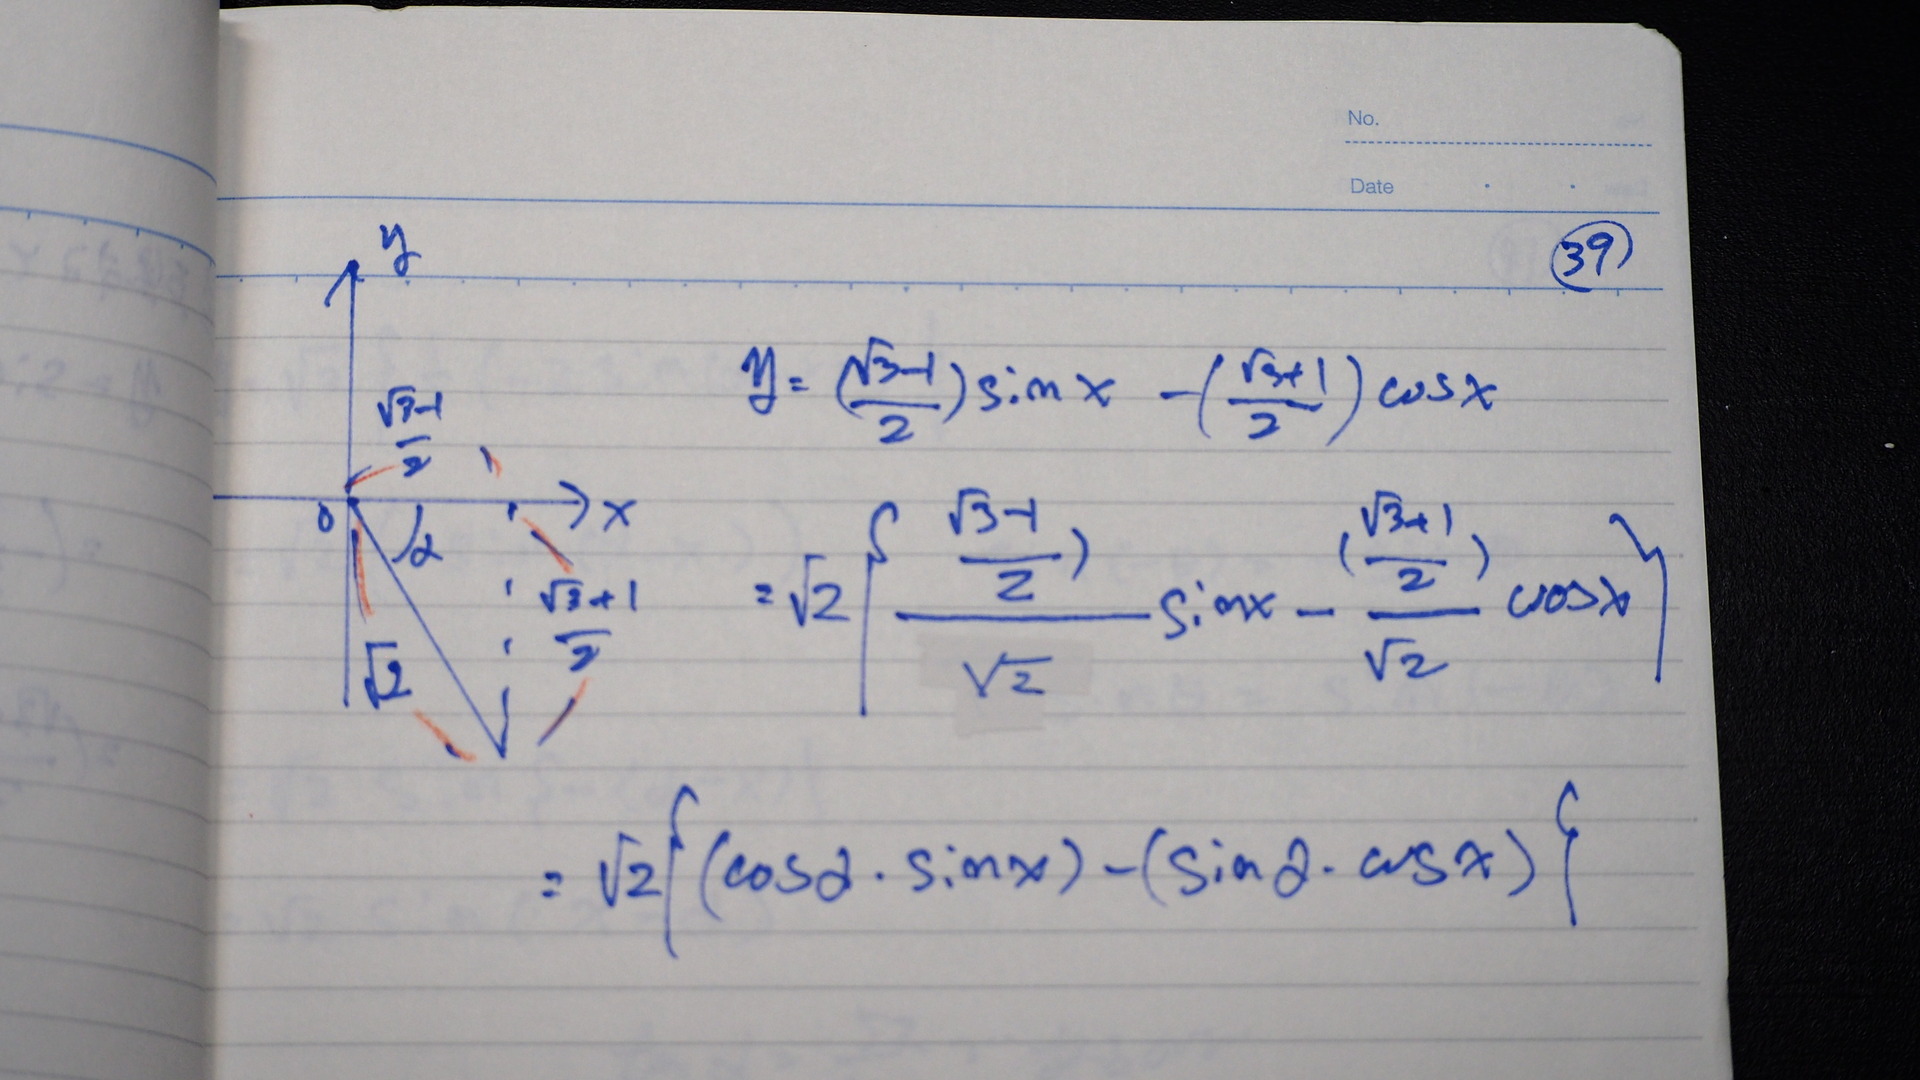 No.
Date
39
y
√3-1/2
0
x
α
√2
√3+1/2
y = (√3-1/2) sin x - (√3+1/2) cos x
= √2 { √3-1/2)/√2 sin x - (√3+1/2)/√2 cos x }
= √2 { (cos α · sin x) - (sin α · cos x) }